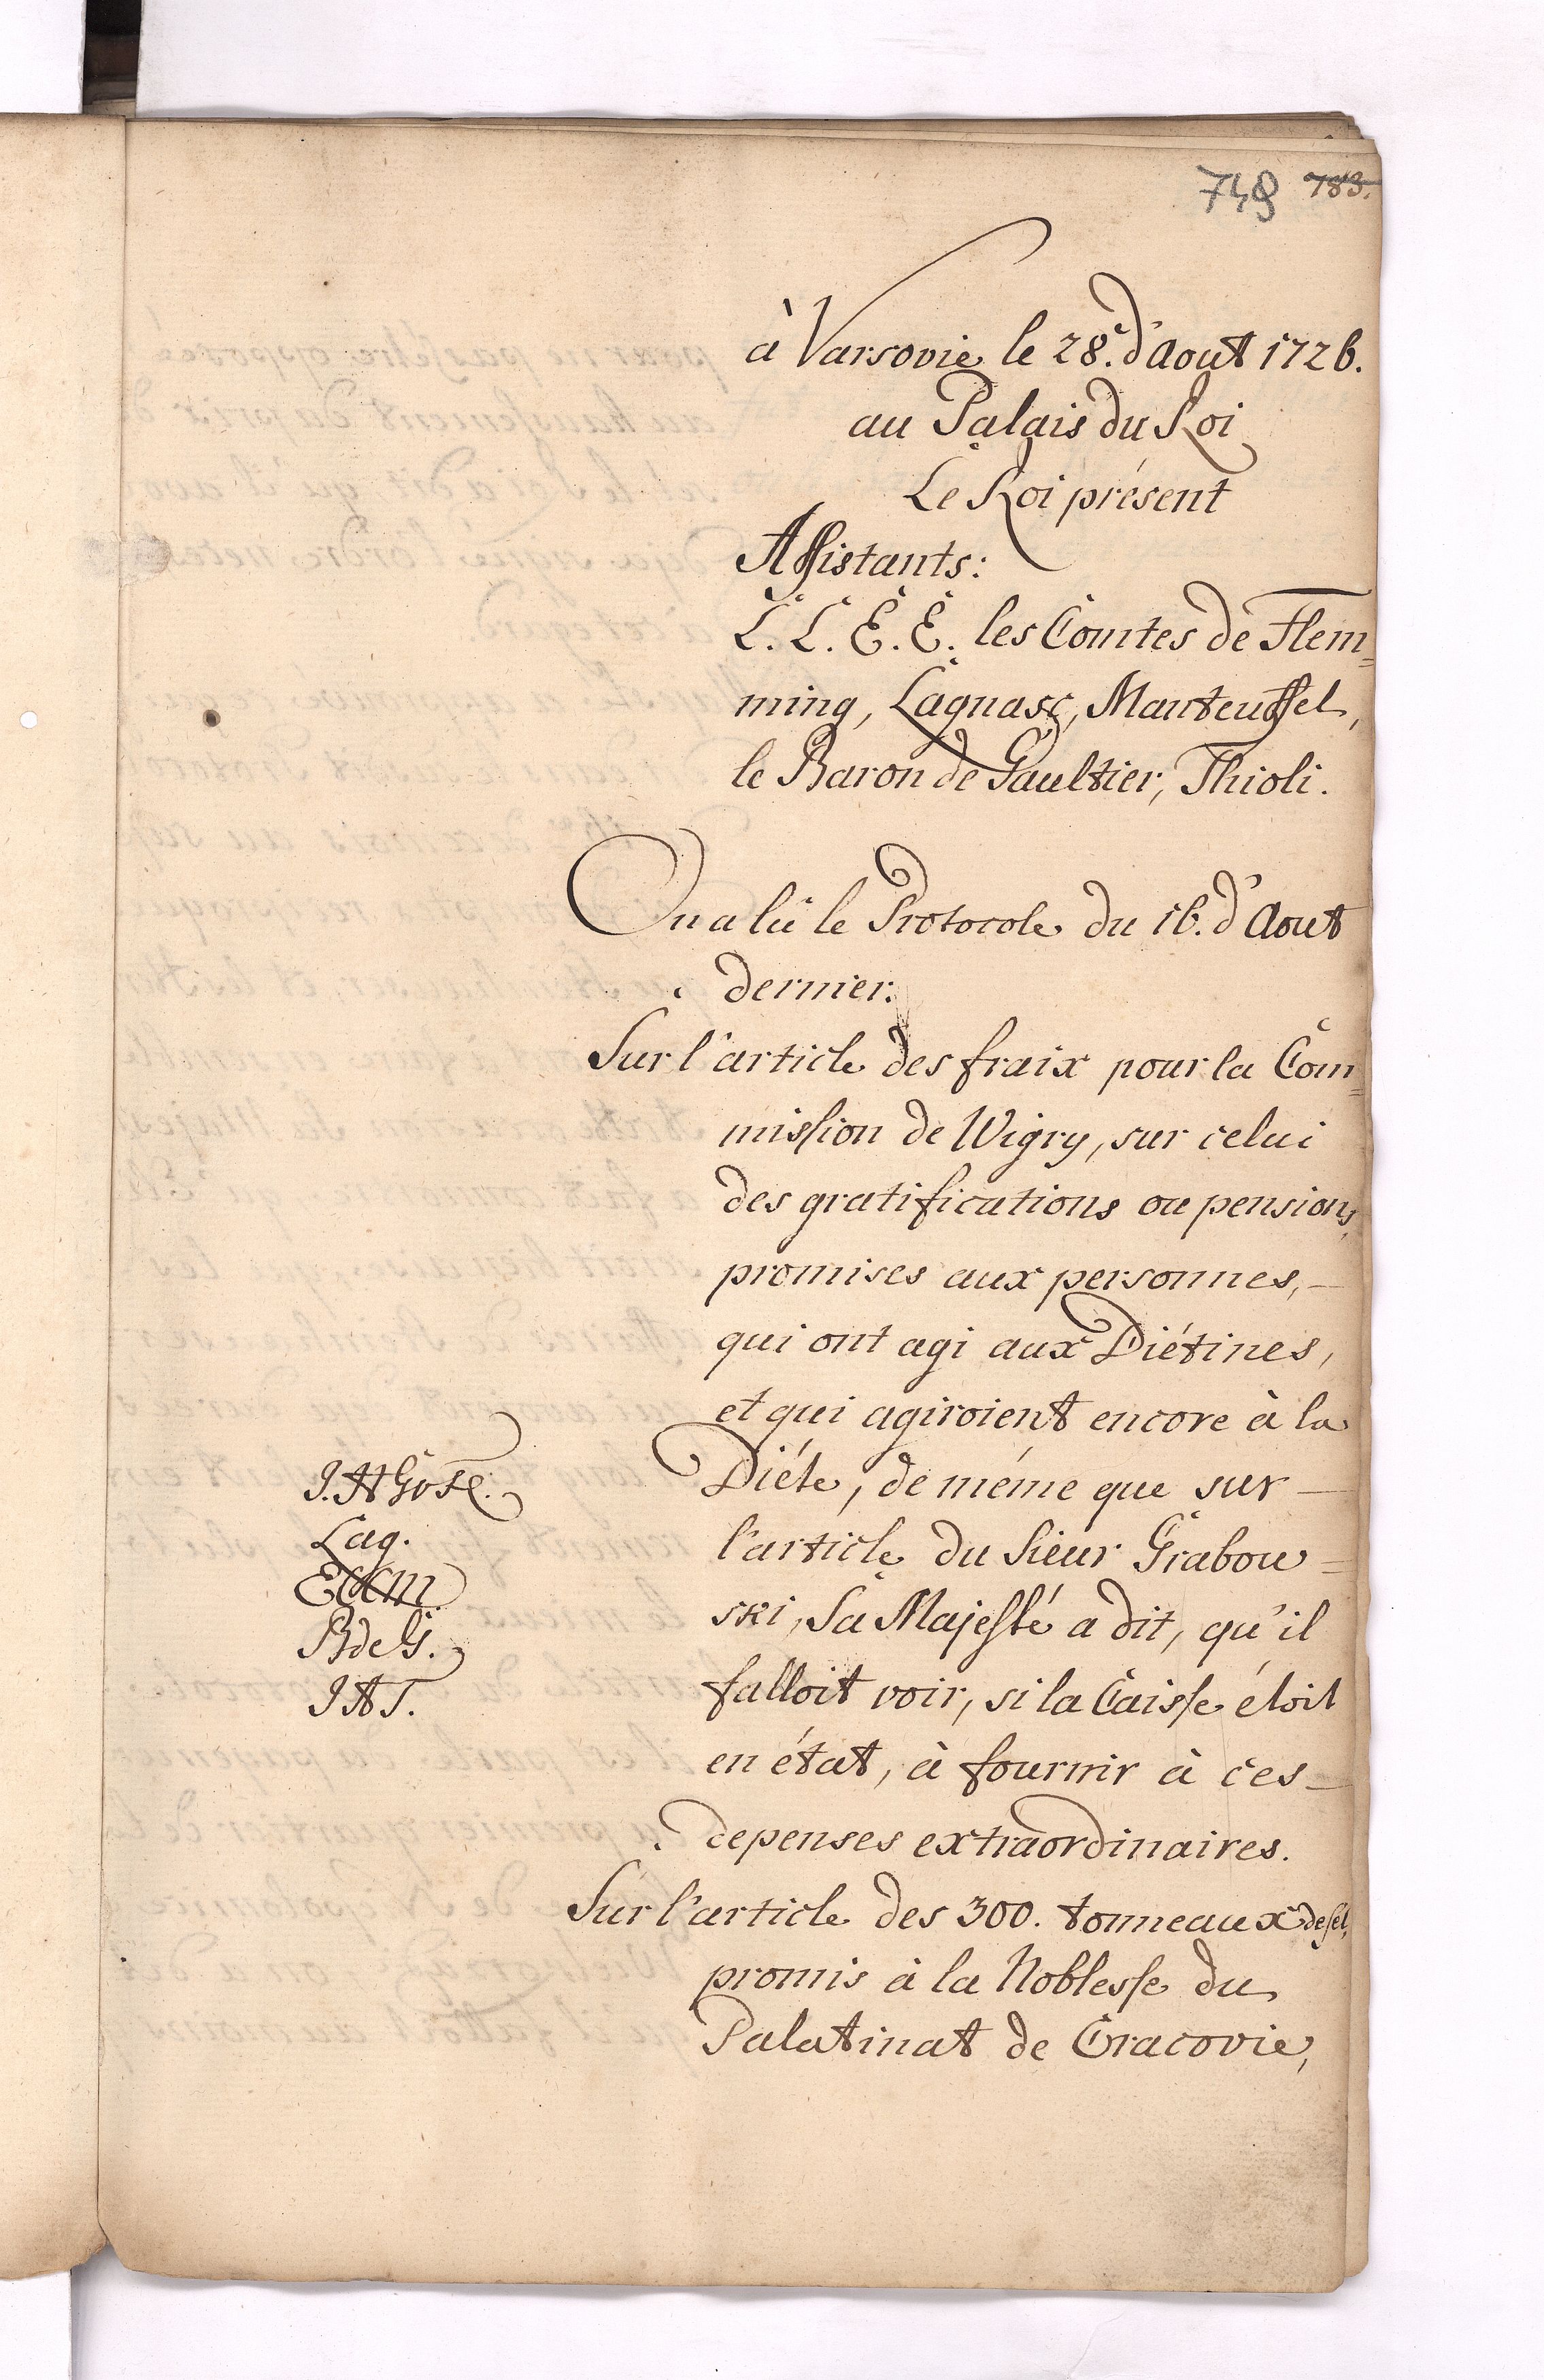 748 783.
à Varsovie le 28.e d'Aout 1726.
au Palais du Roi
Le Roi présent
Assistants:
L. L. E. E. les Comtes de Flem=
ming, Lagnasc, Manteuffel,
le Baron de Gaultier, Thioli.
On a lû le Protocole du 16. d'Aout
dernier.
Sur l'article des fraix pour la Com=
mission de Wigry, sur celui
des gratifications ou pensions,
promises aux personnes,
qui ont agi aux Diétines,
et qui agiroient encore à la
Diéte, de méme que sur
l'article du Sieur Grabow=
ski, Sa Majesté a dit, qu'il
falloit voir, si la Caisse étoit
en état, à fournir à ces
depenses extraordinaires.
Sur l'article des 300. tonneaux de sel,
promis à la Noblesse du
Palatinat de Cracovie,
Lag.
ECCM
BdeG.
JAT.